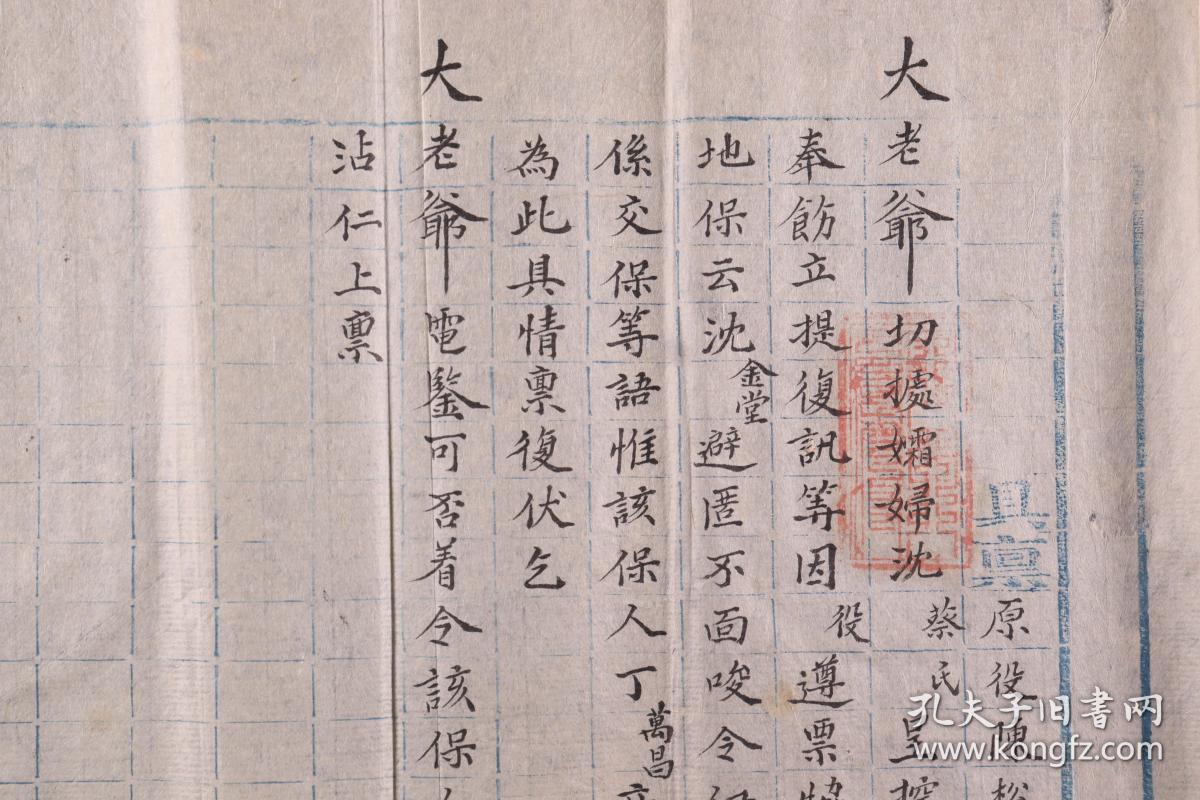 具稟原役陳松
大老爺切據孀婦沈蔡氏呈控
奉飭立提復訊等因役遵票
地保云沈金堂避匿不面唆令
係交保等語惟該保人丁萬昌
為此具情稟復伏乞
大老爺電鑒可否着令該保
沾仁上稟
孔夫子旧书网
www.kongfz.com